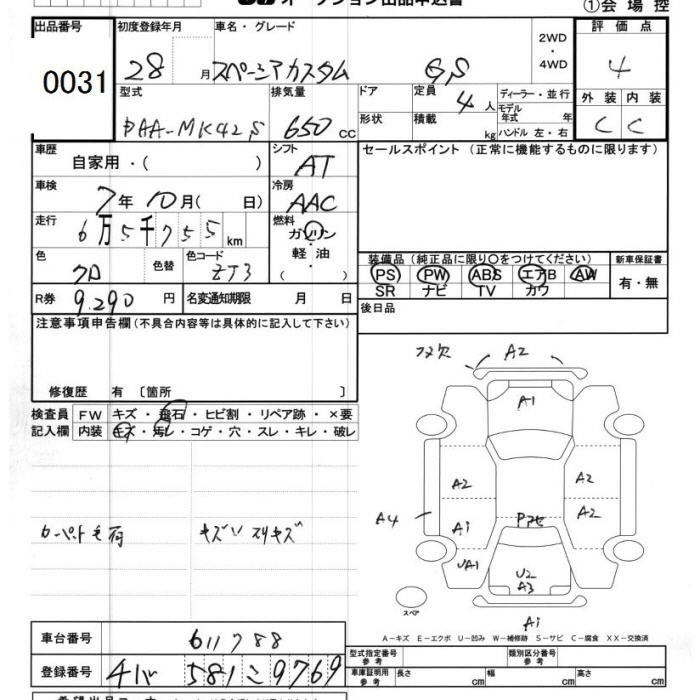 オークション出品申込書
①会場控
出品番号
0031
初度登録年月
28 月
車名・グレード
スペーシアカスタム GS
2WD
・
4WD
評価点
4
外装 内装
C C
型式
DAA-MK42S
排気量
650 cc
ドア
形状
定員
4 人
積載
kg
ディーラー・並行
モデル
年式 年
ハンドル 左・右
車歴
自家用・( )
シフト
AT
セールスポイント (正常に機能するものに限ります)
車検
7年10月( 日)
冷房
AAC
走行
6万5千755 km
燃料
ガソリン
・
軽油
( )
色
クロ
色替
色コード
ZJ3
装備品 (純正品に限り○をつけてください)
PS PW ABS エアB AW
SR ナビ TV カワ
新車保証書
有・無
R券
9.290 円
名変通知期限 月 日
後日品
注意事項申告欄(不具合内容等は具体的に記入して下さい)
修復歴 有 〔箇所 〕
検査員
記入欄
FW キズ・飛石・ヒビ割・リペア跡・×要
内装 キズ・汚レ・コゲ・穴・スレ・キレ・破レ
カーペット毛荷
キズ スリキズ
A2
A1
A2
A2
A2
A4
A1
UA1
U2
A3
A1
スペア
A―キズ E―エクボ U―凹み W―補修跡 S―サビ C―腐食 XX―交換済
車台番号
611788
登録番号
581 こ 9769
型式指定番号
参考
類別区分番号
参考
車庫証明用
参考
長さ cm
幅 cm
高さ cm